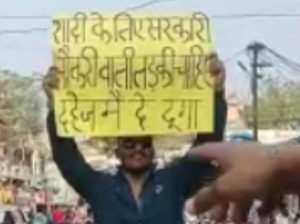 शादी के लिए सरकारी
नौकरी वाली लड़की चाहिए
दहेज मै दे दूगा